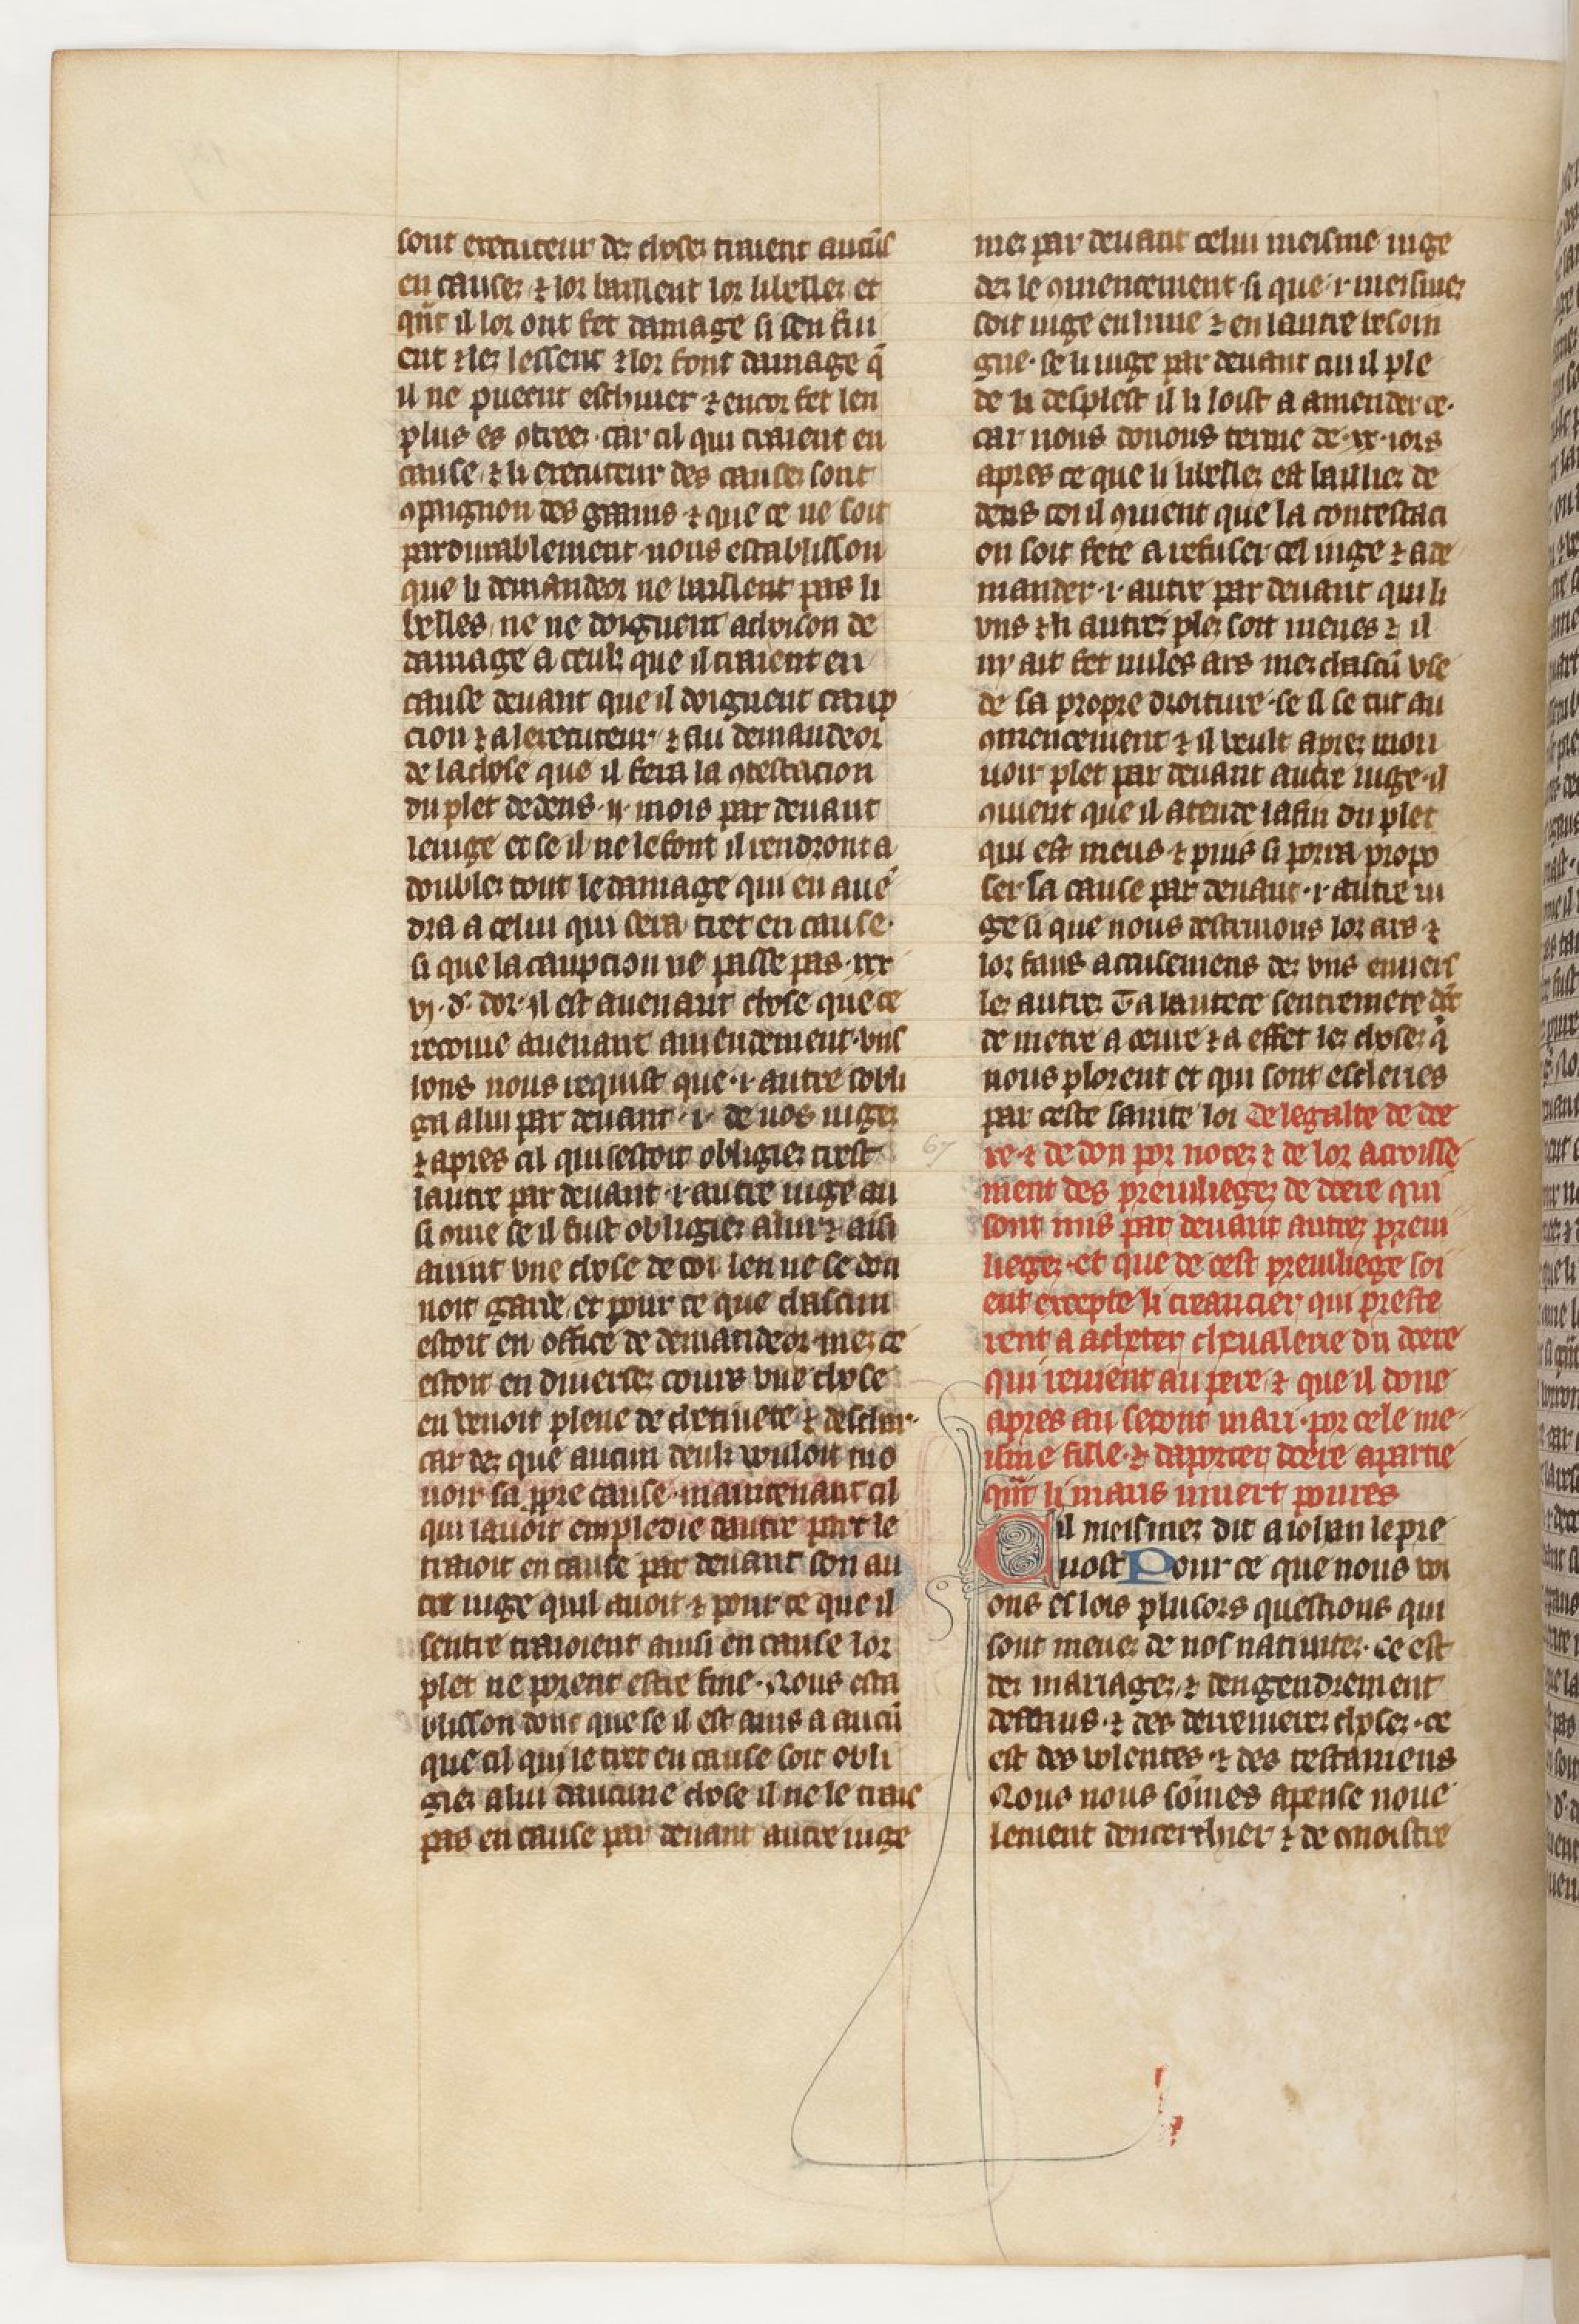 sont executeur des choses traient aucūs
en causes ⁊ lor baillent lor libelles et
qn̄t il lor ont fet damage si sen fui
ent ⁊ les lessent ⁊ lor font damage q̄
il ne pueent eschiuer ⁊ encor fet len
plus es ꝯtrees · car cil qui traient en
cause ⁊ li executeur des causes sont
ꝯpaignon des gaains ⁊ que ce ne soit
pardurablement · nous establisson
que li demandeor ne baillent pas li
belles ne ne doignent achoison de
damage a ceuls que il traient en
cause deuant que il doignent caup
cion ⁊ a lexecuteur ⁊ au demandeor
de la chose que il fera la ꝯtestacion
du plet dedens · ij · mois par deuant
le iuge et se il ne le font il rendront a
doubles tout le damage qui en auē
dra a celui qui sera tret en cause ·
si que la caupcion ne passe pas · xxx
vj · d' · dor · Il est auenant chose que ce
recoiue auenant amendement · vns
ions nous requist que · i · autre sobli
ga a lui par deuant · i · de nos iuges
⁊ apres cil qui sestoit obligies trest
lautre par deuant · i · autre iuge au
si ꝯme se il fust obligies a lui ⁊ aisi
auint vne chose de coi len ne se don
noit garde et pour ce que chascun
estoit en office de demandeor · mes ce
estoit en diuerses cours vne chose
en venoit plene de chetiuete ⁊ deschar ·
car des que aucun deuls vouloit mo
uoir sa ꝓpre cause · maintenant cil
qui lauoit empledie dautre part le
traioit en cause par deuant son au
tre iuge quil auoit ⁊ pour ce que il
sentre traioient ainsi en cause lor
plet ne porent estre fine · Nous esta
blisson donc que se il est auis a aucū
que cil qui le tret en cause soit obli
gies a lui daucune chose il ne le traie
pas en cause par deuant autre iuge
mes par deuant celui meisme iuge
des le ꝯmencement · si que · i · meismes
soit iuge en lune ⁊ en lautre besoin
gne · se li iuge par deuant cui il ple
de li desplest il li loist a amender ce ·
car nous donons terme de · xx · iors
apres ce que li libelles est bailliez de
dens coi il ꝯuient que la contestaci
on soit fete a refuser cel iuge ⁊ a de
mander · i · autre par deuant qui li
vns ⁊ li autres ples soit menes ⁊ il
ny ait fet nules ars mes chascū vse
de sa propre droiture · se il se tut au
ꝯmencement ⁊ il veult apres mou
uoir plet par deuant autre iuge · il
ꝯuient que il atende la fin du plet
qui est meus ⁊ puis si porra propo
ser sa cause par deuant · i · autre iu
ge si que nous destruions lor ars ⁊
lor faus accusemens des vns enuers
les autres Ta hautece sentremete dōc
de metre a oeure ⁊ a effet les choses q̄
nous plorent et qui sont escleries
par ceste sainte loi De legalte de doe
re · ⁊ de don por noces ⁊ de lor acroisse
ment des preuilieges de doere qui
sont mis par deuant autres preui
lieges · et que de cest preuiliege soi
ent excepte li creancier qui preste
rent a acheter cheualerie du doere
qui reuient au pere ⁊ que il done
apres au secont mari · por cele me
isme fille · ⁊ daporter doere apartie
qn̄t li maris muert poures
Cil meismes dit a iohan le pre
uost Pour ce que nous voi
ons es lois plusors questions qui
sont meues de nos natiuites · ce est
des mariages ⁊ dengendrement
denfans · ⁊ des derrenieres choses · ce
est des volentes · ⁊ des testamens
Nous nous sōmes apense nouue
lement dencerchier ⁊ de ꝯnoistre
67